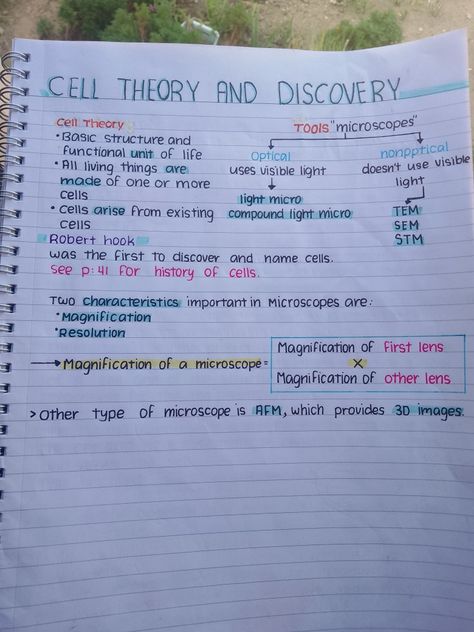 CELL THEORY AND DISCOVERY
Cell Theory
• Basic structure and
functional unit of life
• All living things are
made of one or more
cells
• Cells arise from existing
cells
Tools "microscopes"
Optical
uses visible light
light micro
compound light micro
nonpptical
doesn't use visible
light
TEM
SEM
STM
Robert hook
was the first to discover and name cells.
See p:41 for history of cells.
Two characteristics important in Microscopes are:
•Magnification
•Resolution
→Magnification of a microscope=
Magnification of first lens
×
Magnification of other lens
>Other type of microscope is AFM, which provides 3D images.